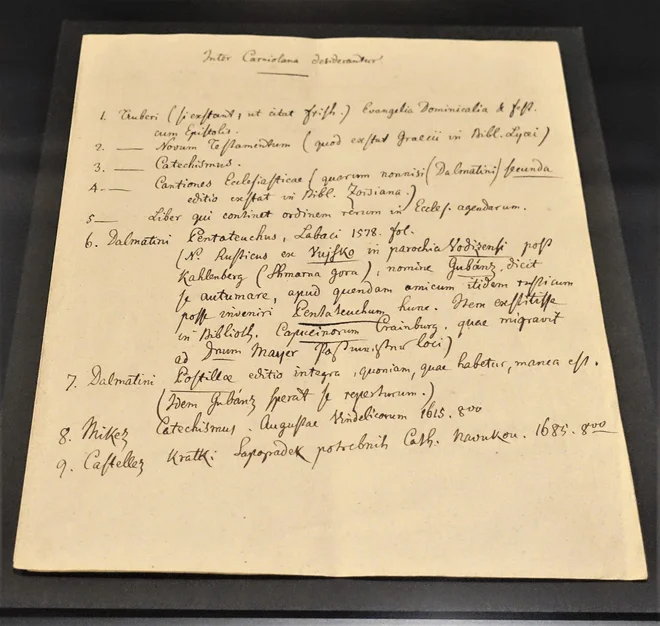 Inter Carniolana desiderantur
1. Truberi (si exstant, ut citat Frish.) Evangelia Dominicalia & fest.
cum Epistolis.
2. — Novum Testamentum (quod exstat Graecii in Bibl. Lycei)
3. — Catechismus.
4. — Cantiones Ecclesiasticae (quarum nonnisi (Dalmatini) secunda
editio exstat in Bibl. Zoisiana.)
5 — Liber qui continet ordinem rerum in Eccles. agendarum.
6. Dalmatini Pentateuchus, Labaci 1578. fol.
(NB. Rusticus ex Vujsko in parochia Vodizensi post
Kahlenberg (Shmarna gora), nomine Gubánz, dicit
se autumare, apud quendam amicum itidem rusticum
posse inveniri Pentateuchum hunc. Item exstitisse
in Biblioth. Capucinorum Crainburg. quae migravit
ad Drum Mayer loci)
7. Dalmatini Postillae editio integra, quoniam, quae habetur, manca est.
(Idem Gubánz sperat se reperturum.)
8. Mikez Catechismus. Augustae Vindelicorum 1615. 8vo
9. Castellez Kratki Sapopadek potrebnih Cath. Navukou. 1685. 8vo